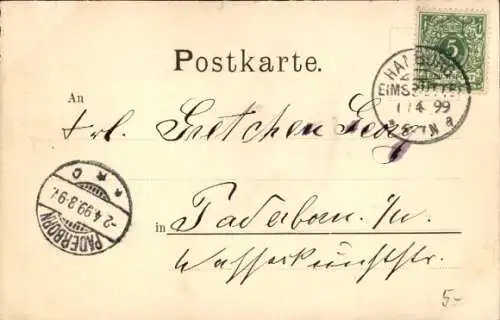 Postkarte.
5
HAMBURG
EIMSBÜTTEL
1/4 99
An
Frl. Gretchen
PADERBORN
2.4.99.8-9V.
* * c
in Paderborn i/W
Wasserkunststr.
5-